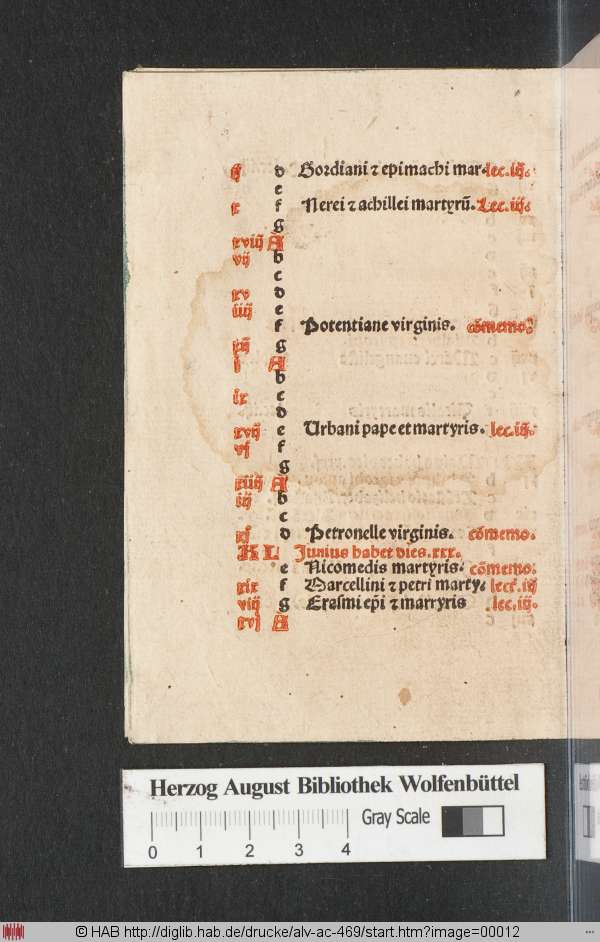 ij d Gordiani ⁊ epimachi mar. lec. iij.
e
x f Nerei ⁊ achillei martyrū. Lec. iij.
g
xviij A
vij b
c
xv d
iiij e
f Potentiane virginis. cōmemo.
xij g
j A
b
ix c
d
xvij e Urbani pape et martyris. lec. iij.
vj f
g
xiiij A
iij b
c
xj d Petronelle virginis. cōmemo.
KL Junius habet dies. xxx.
e Nicomedis martyris. cōmemo.
xix f Marcellini ⁊ petri marty. lect. iij
viij g Erasmi ep̄i ⁊ martyris lec. iij.
xvj A
Herzog August Bibliothek Wolfenbüttel
Gray Scale
0 1 2 3 4
© HAB http://diglib.hab.de/drucke/alv-ac-469/start.htm?image=00012